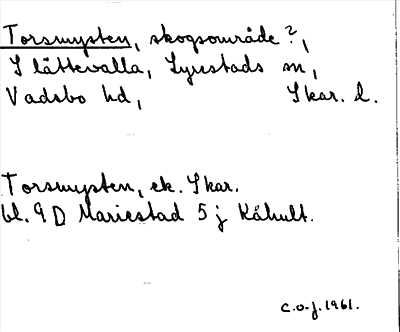 Torsmysten, skogsområde?,
Slättevalla, Lyrestads sn,
Vadsbo hd, Skar. l.
Torsmysten, ek. Skar.
bl. 9 D Mariestad 5 j Kåhult.
C.O-J. 1961.